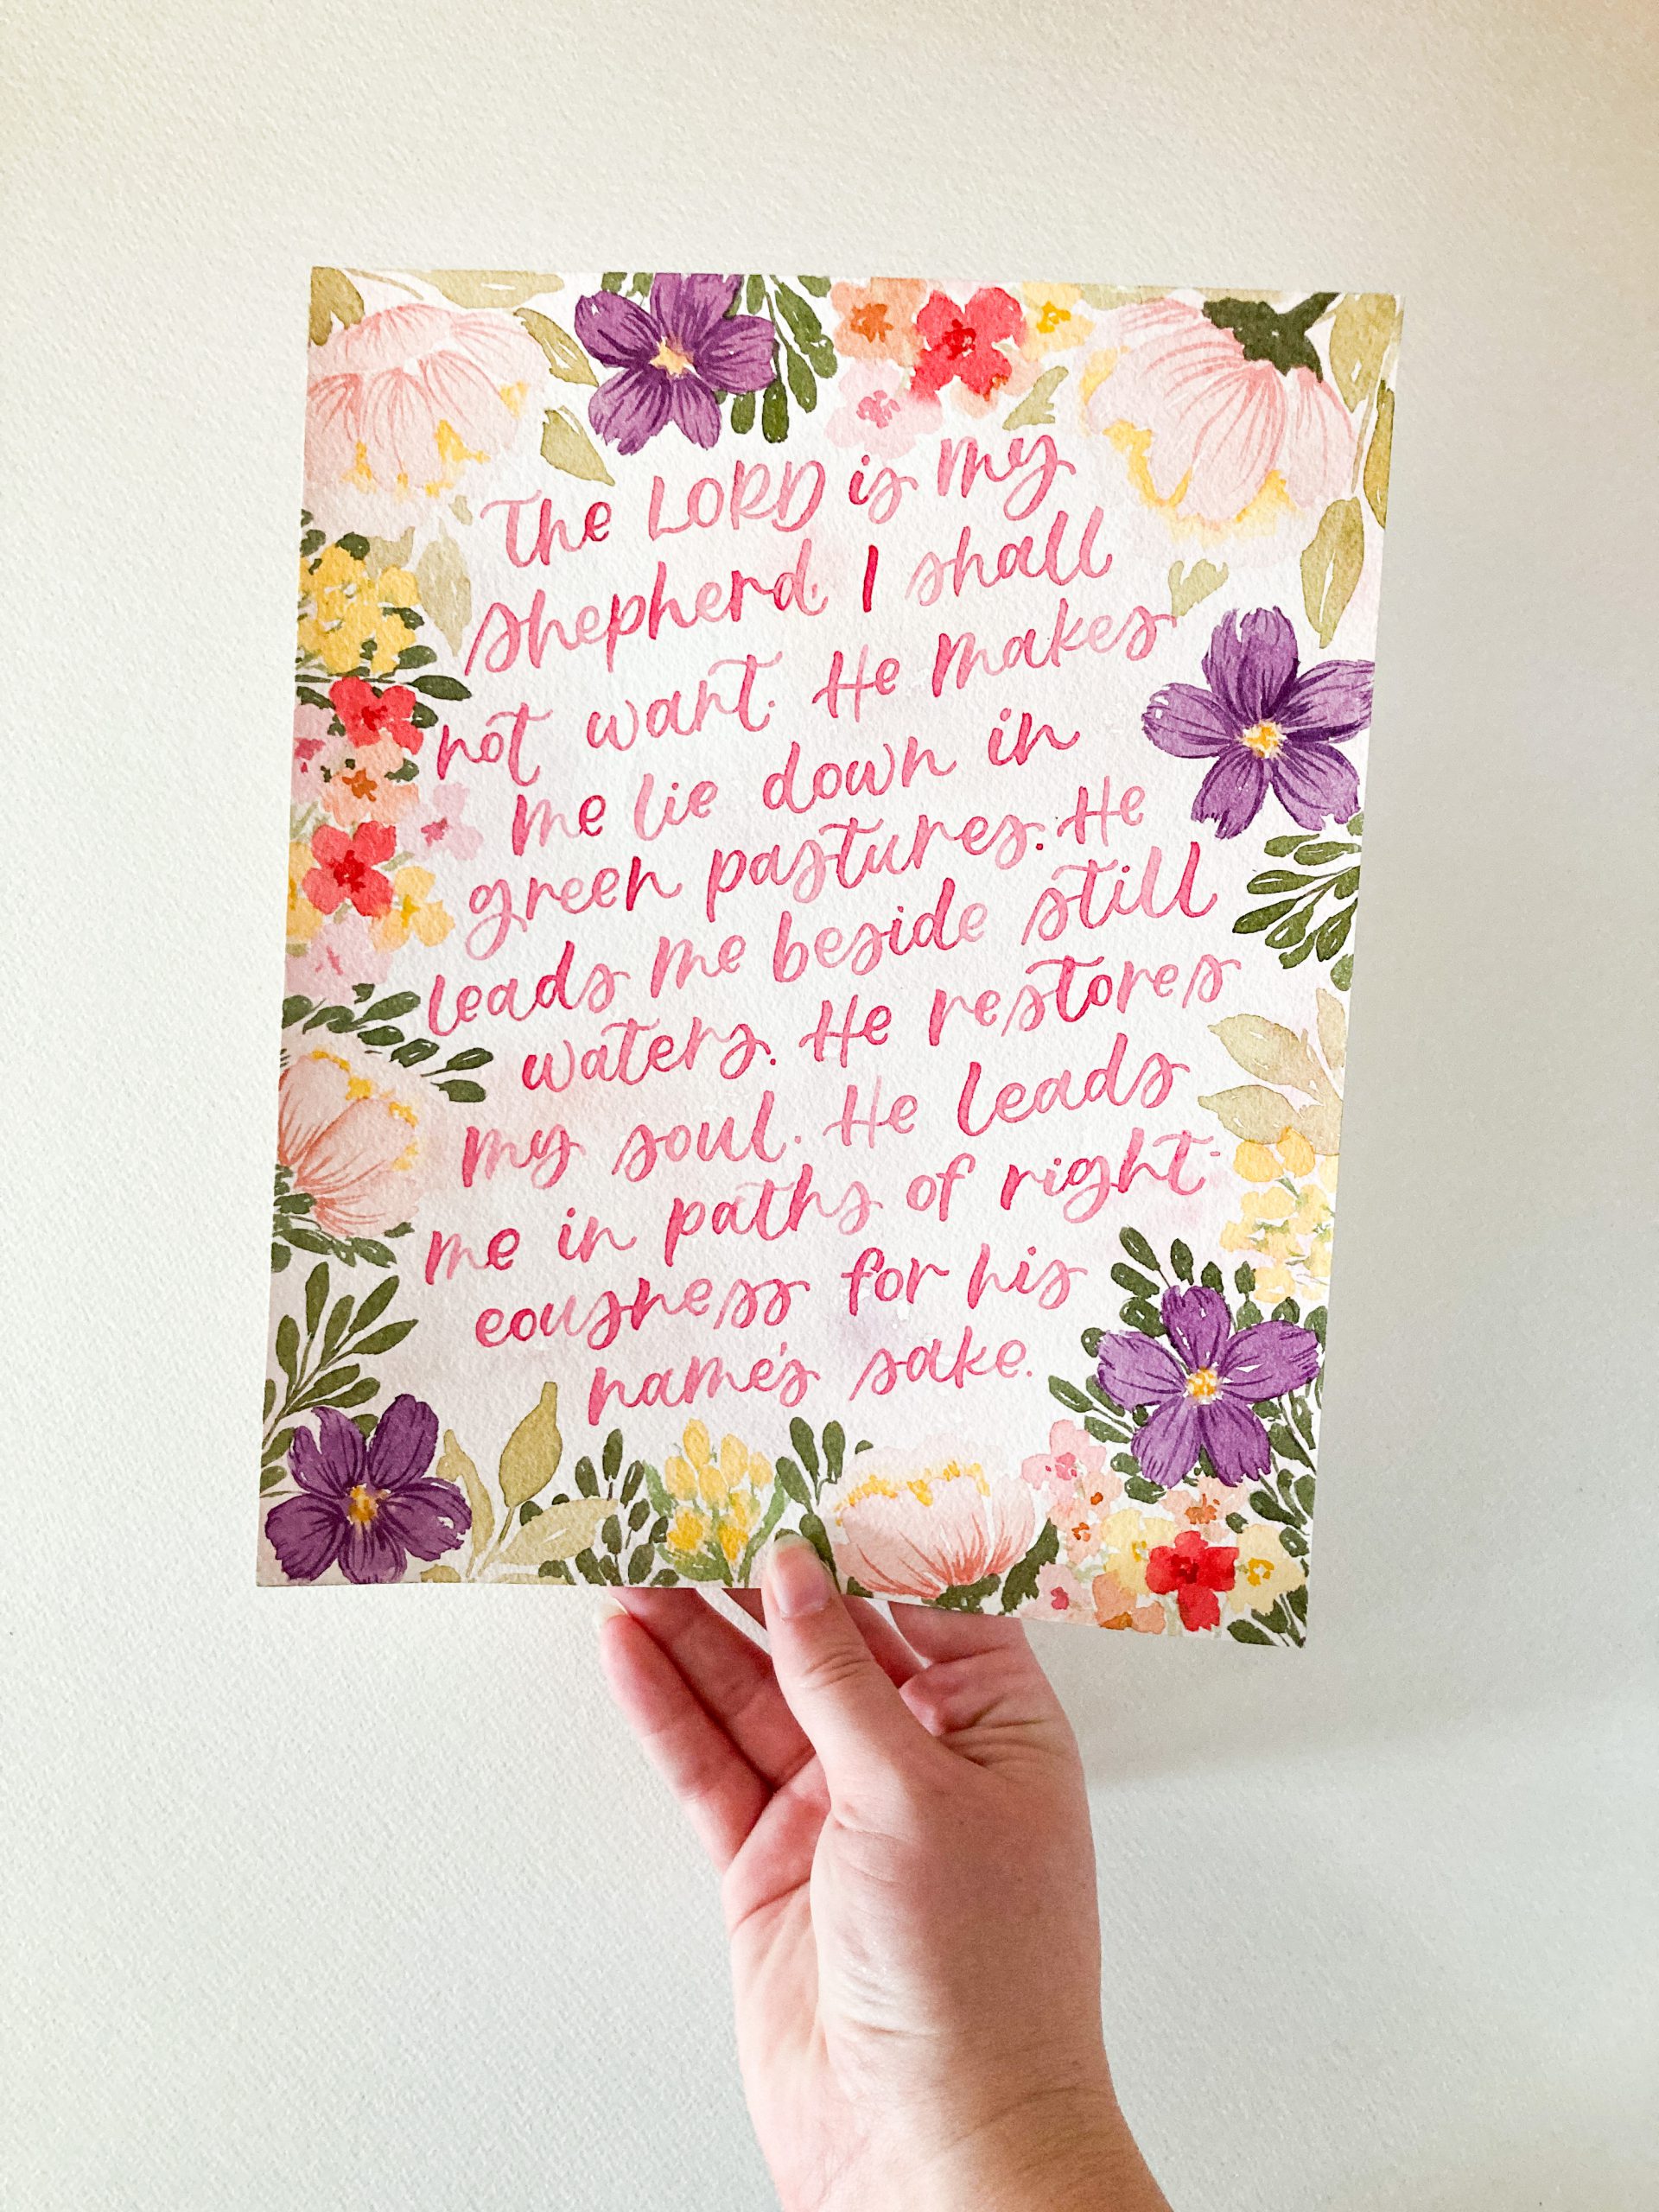 The LORD is my
shepherd. I shall
not want. He makes
me lie down in
green pastures. He
leads me beside still
waters. He restores
my soul. He leads
me in paths of right-
eousness for his
name's sake.